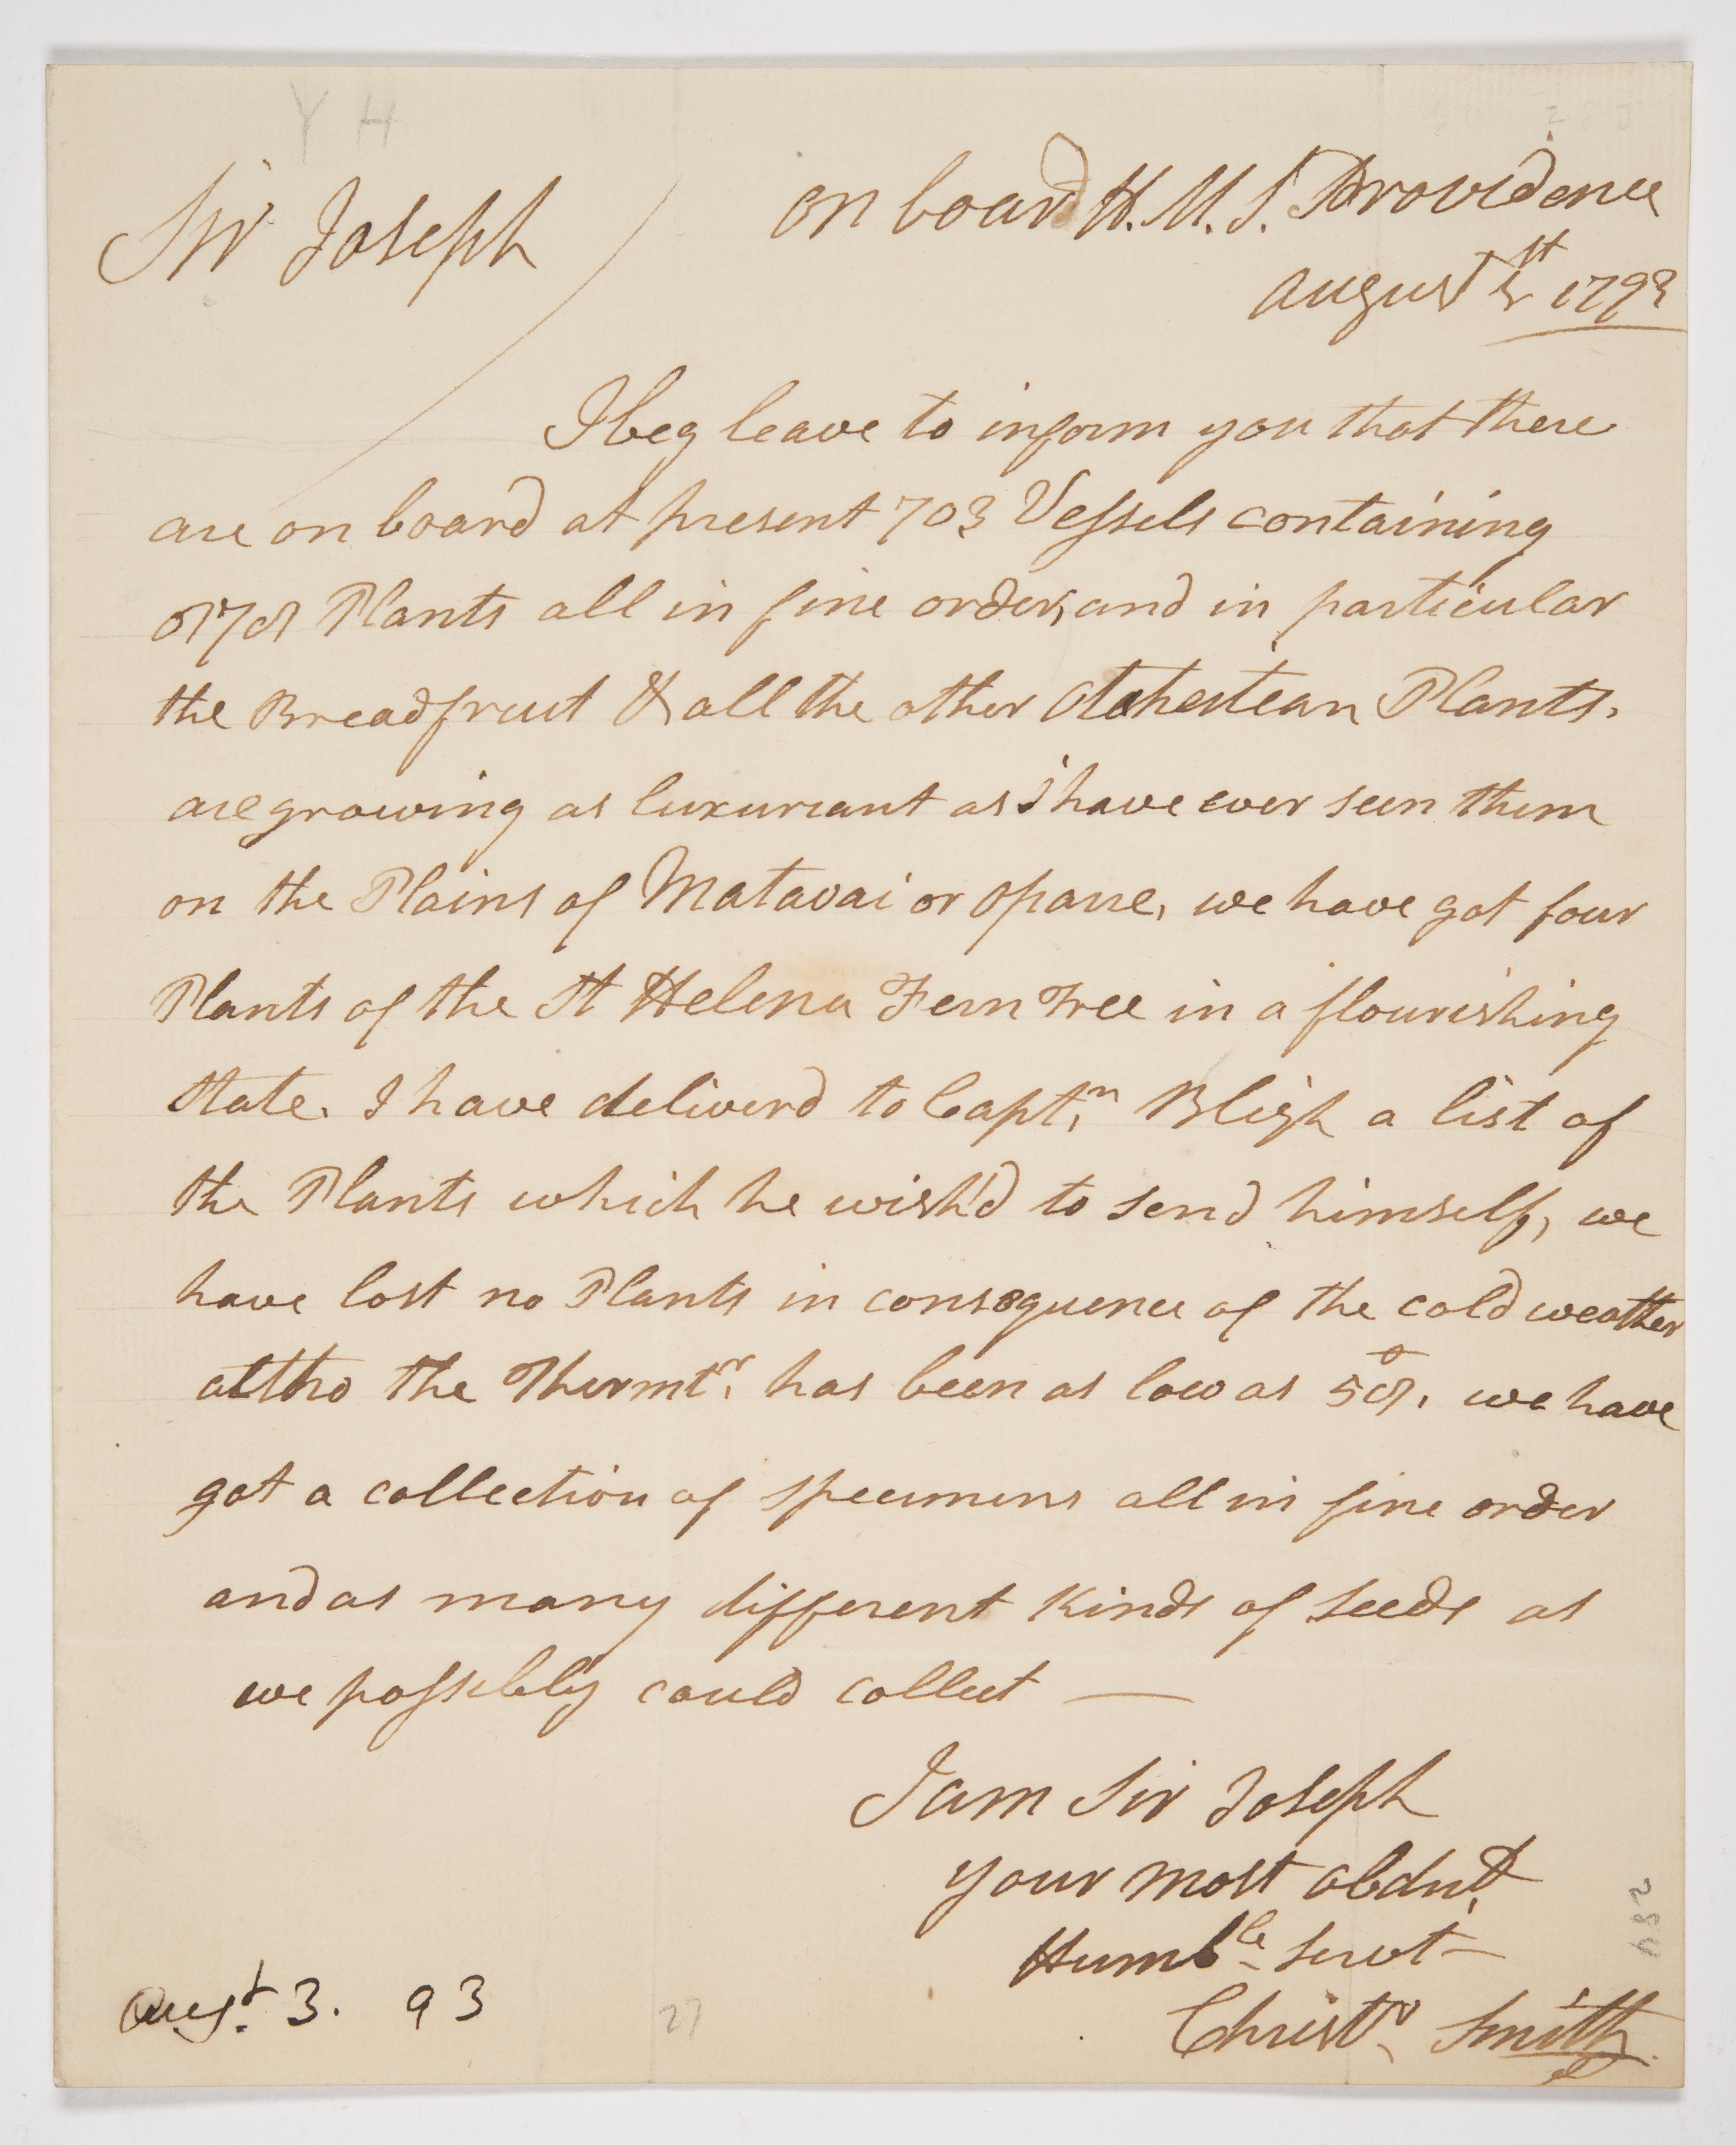 Y H
Sir Joseph
on board H.M.S. Providence
August 1st 1793
I beg leave to inform you that there
are on board at present 703 Vessels containing
878 Plants all in fine order, and in particular
the Breadfruit & all the other Otahestean Plants.
are growing as luxuriant as i have ever seen them
on the Plains of Matavai or Oparre, we have got four
Plants of the St Helena Fern Tree in a flourishing
State. I have deliverd to Captn. Bligh a list of
the Plants which he wish'd to send himself, we
have lost no Plants in consequence of the cold weather
altho the Thermtr. has been as low as 58°, we have
got a collection of specimens all in fine order
and as many different kinds of seeds as
we possibly could collect —
I am Sir Joseph
your most obdnt.
Humble servt —
Christr. Smith.
Augst. 3. 93
27